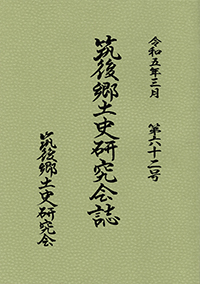 令和五年三月　第六十二号
筑後郷土史研究会誌
筑後郷土史研究会